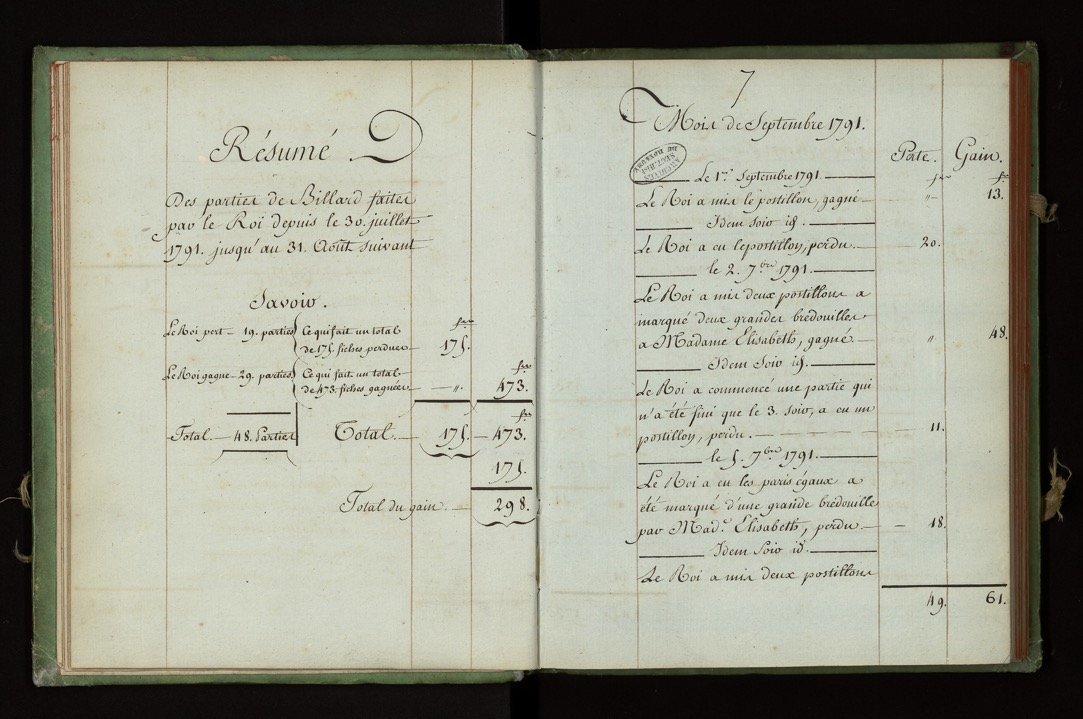 Résumé
Des parties de Billard faites
par le Roi depuis le 30. juillet
1791. jusqu'au 31. Août suivant
Savoir.
Le Roi pert — 19. parties Ce qui fait un total
de 175. fiches perdues 175.
Le Roi gagne — 29. parties Ce qui fait un total
de 473. fiches gagnées — „. 473.
Total. — 48. Parties Total. — 175. — 473.
175.
Total du gain. — 298.
7
Mois de Septembre 1791.
Perte. Gain.
Le 1.er Septembre 1791.
Le Roi a mis le postillon, gagné — „ 13.
Idem Soir id.
Le Roi a eu le postillon, perdu — 20.
le 2. 7.bre 1791.
Le Roi a mis deux postillons a
marqué deux grandes bredouilles
a Madame Elisabeth, gagné — „ 48.
Idem Soir id.
Le Roi a commencé une partie qui
n'a été fini que le 3. soir, a eu un
postillon, perdu. — 11.
le 5. 7.bre 1791.
Le Roi a eu les paris égaux a
été marqué d'une grande bredouille
par Mad.e Elisabeth, perdu — 18.
Idem Soir id.
Le Roi a mis deux postillons
49. 61.